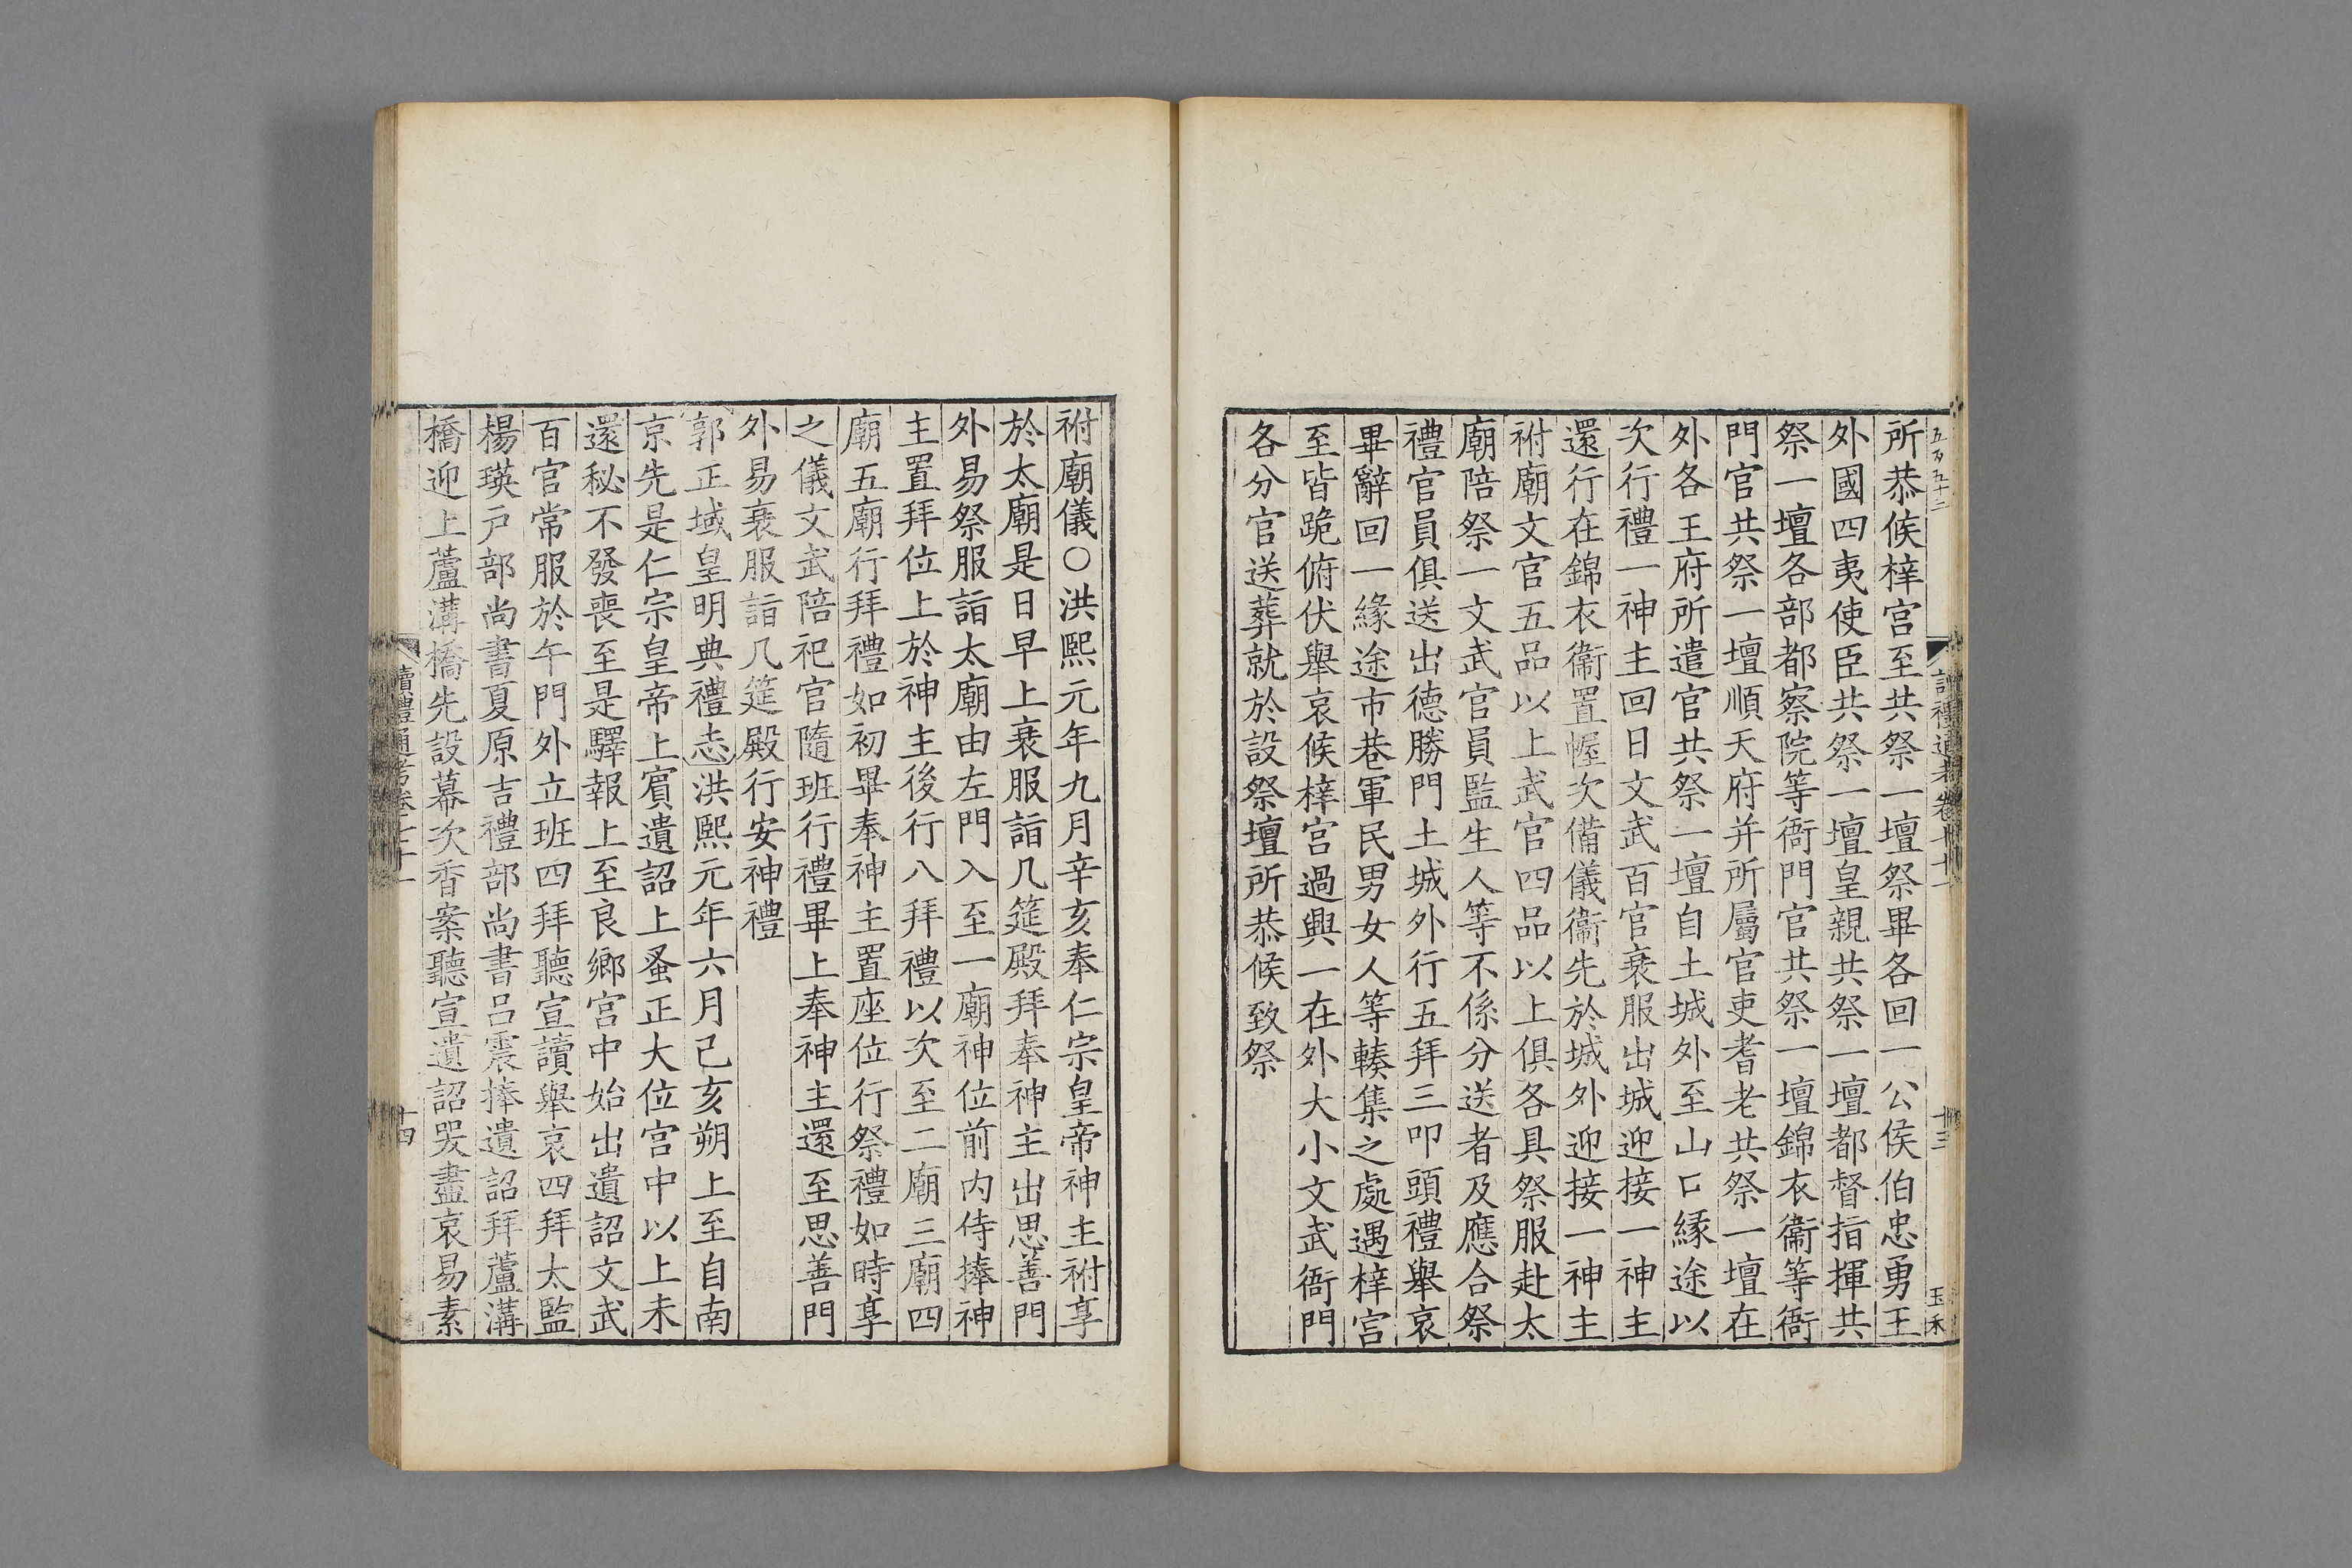 五百五十二
讀禮通考卷七十一
十三
玉禾
所恭候梓宮至共祭一壇祭畢各回一公侯伯忠勇王
外國四夷使臣共祭一壇皇親共祭一壇都督指揮共
祭一壇各部都察院等衙門官共祭一壇錦衣衞等衙
門官共祭一壇順天府并所屬官吏耆老共祭一壇在
外各王府所遣官共祭一壇自土城外至山口緣途以
次行禮一神主回日文武百官衰服出城迎接一神主
還行在錦衣衞置幄次備儀衞先於城外迎接一神主
祔廟文官五品以上武官四品以上俱各具祭服赴太
廟陪祭一文武官員監生人等不係分送者及應合祭
禮官員俱送出德勝門土城外行五拜三叩頭禮舉哀
畢辭回一緣途市巷軍民男女人等輳集之處遇梓宮
至皆跪俯伏舉哀候梓宮過興一在外大小文武衙門
各分官送葬就於設祭壇所恭候致祭
祔廟儀○洪熙元年九月辛亥奉仁宗皇帝神主祔享
於太廟是日早上衰服詣几筵殿拜奉神主出思善門
外易祭服詣太廟由左門入至一廟神位前内侍捧神
主置拜位上於神主後行八拜禮以次至二廟三廟四
廟五廟行拜禮如初畢奉神主置座位行祭禮如時享
之儀文武陪祀官隨班行禮畢上奉神主還至思善門
外易衰服詣几筵殿行安神禮
郭正域皇明典禮志洪熙元年六月己亥朔上至自南
京先是仁宗皇帝上賓遺詔上蚤正大位宮中以上未
還秘不發喪至是驛報上至良鄉宮中始出遺詔文武
百官常服於午門外立班四拜聽宣讀舉哀四拜太監
楊瑛戸部尚書夏原吉禮部尚書呂震捧遺詔拜蘆溝
橋迎上蘆溝橋先設幕次香案聽宣遺詔哭盡哀易素
讀禮通考卷七十一
十四